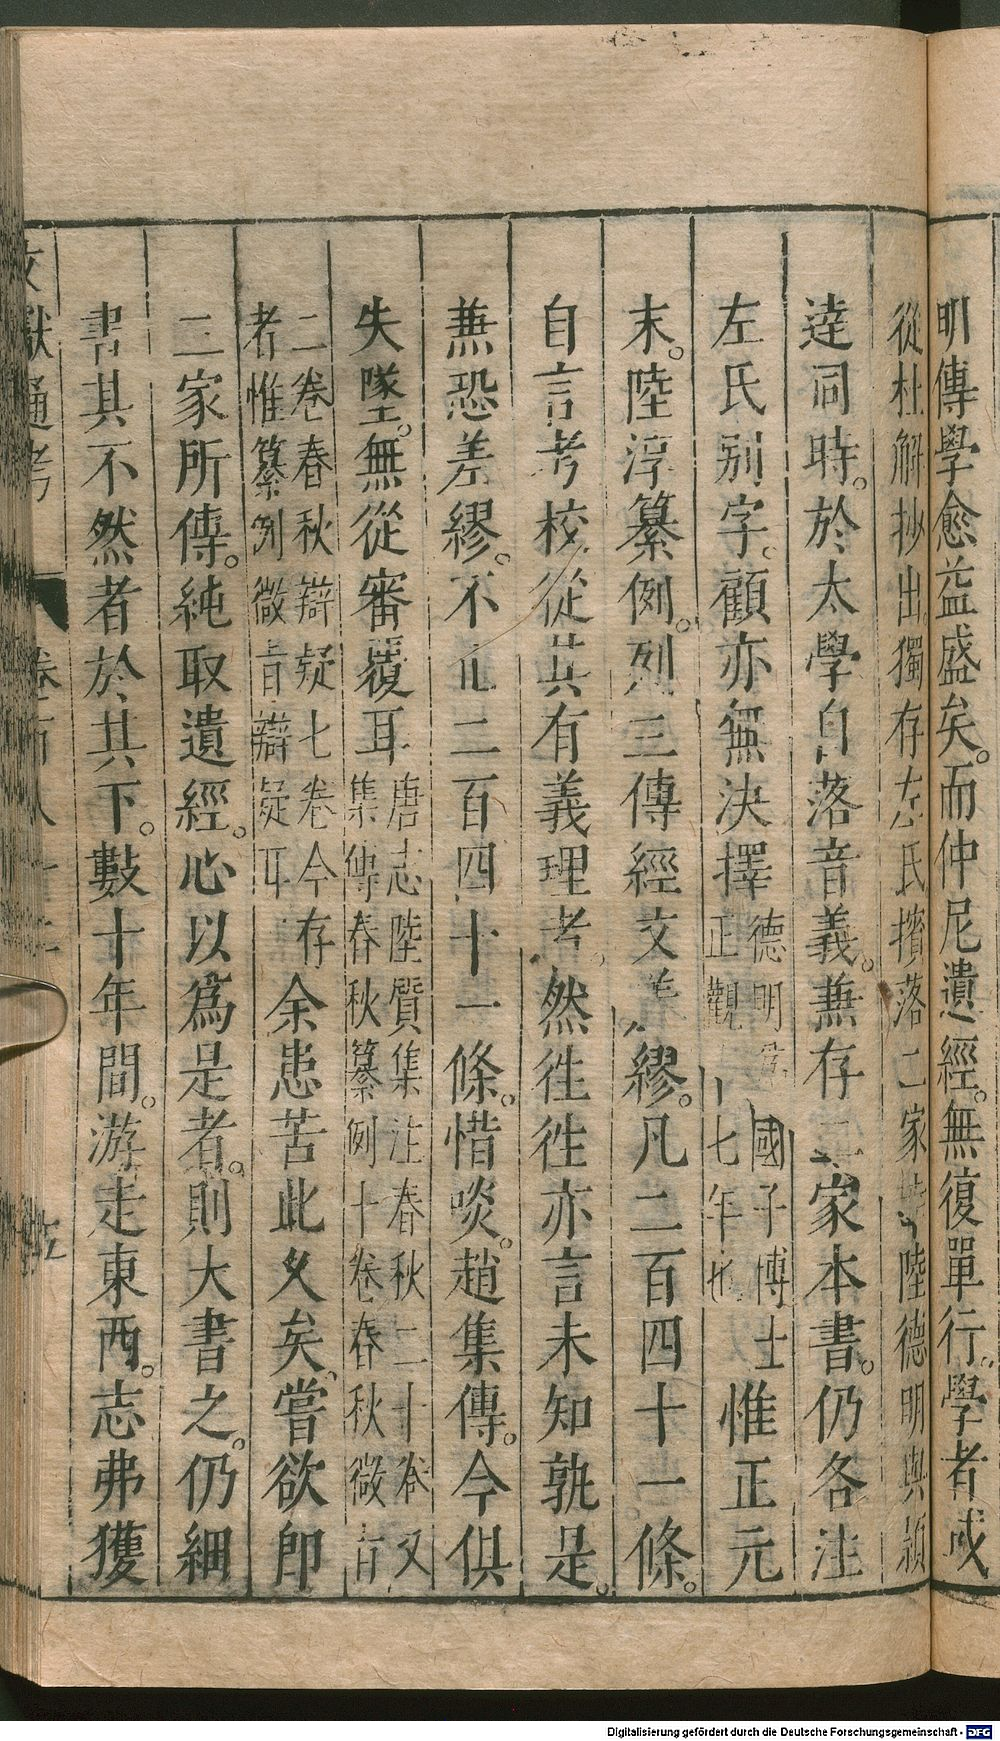 明傳學愈益盛矣。而仲尼遺經。無復單行。學者或
從杜解抄出獨存左氏擯落二家陸德明與穎
達同時。於太學自落音義。兼存二家本書。仍各注
左氏別字。顧亦無決擇德明國子博士正觀十七年也惟正元
末。陸淳纂例。列三傳經文差繆。凡二百四十一條。
自言考校從其有義理者。然徃徃亦言未知孰是。
兼恐差繆。不止二百四十一條。惜啖。趙集傳。今俱
失墜。無從審覆耳唐志陸質集注春秋二十卷又集傳春秋纂例十卷春秋微旨
二卷春秋辯疑七卷今存者惟纂例微旨辯疑耳余患苦此久矣。嘗欲即
二家所傳。純取遺經。心以為是者。則大書之。仍細
書其不然者於其下。數十年間。游走東西。志弗獲
文獻通考 卷百八十二
Digitalisierung gefördert durch die Deutsche Forschungsgemeinschaft - DFG